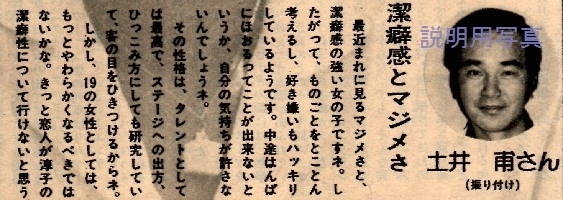 説明用写真
土井　甫さん
（振り付け）
潔癖感とマジメさ
最近まれに見るマジメさと、
潔癖感の強い女の子ですネ。し
たがって、ものごとをとことん
考えるし、好き嫌いもハッキリ
しているようです。中途はんぱ
にほおるってことが出来ないと
いうか、自分の気持ちが許さな
いんでしょうネ。
その性格は、タレントとして
は最高で、ステージへの出方、
ひっこみ方にしても研究してい
て、客の目をひきつけるからネ。
しかし、19の女性としては、
もっとやわらかくなるべきでは
ないかな。きっと恋人が淳子の
潔癖性について行けないと思う